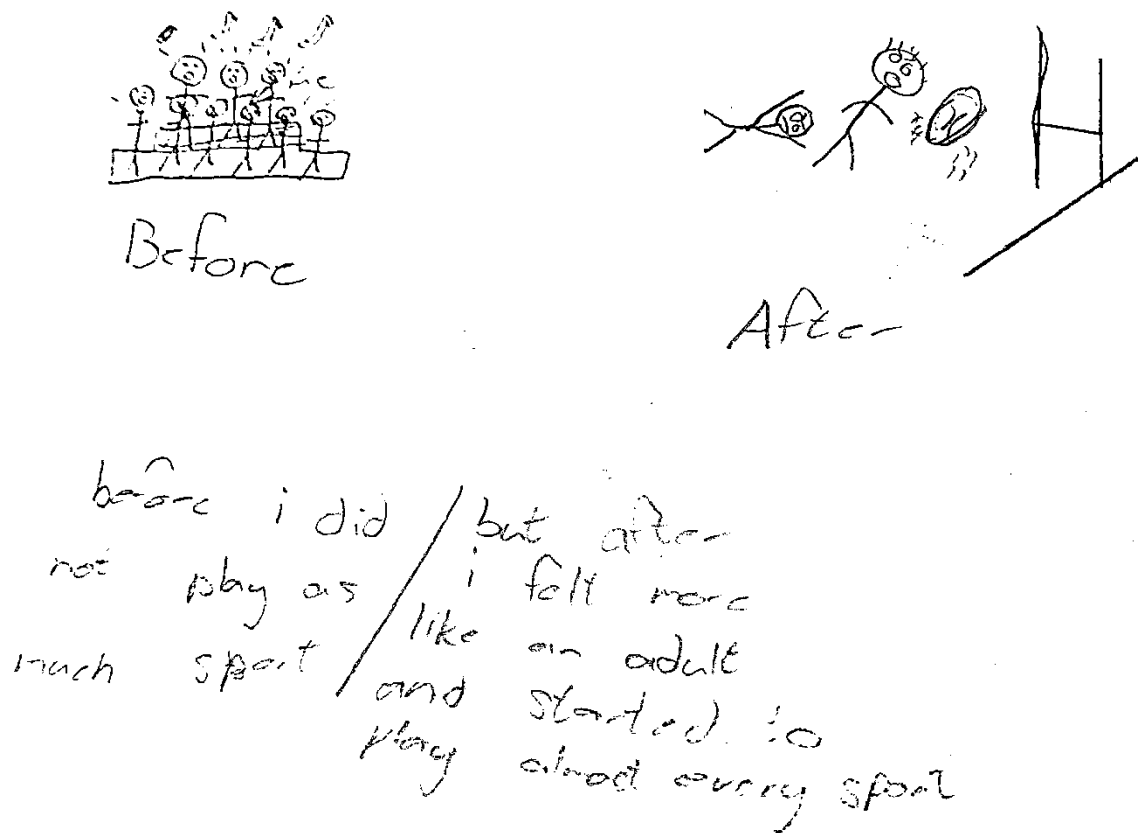 me
Before
After
before i did
not play as
much sport
but after
i felt more
like an adult
and started to
play almost every sport